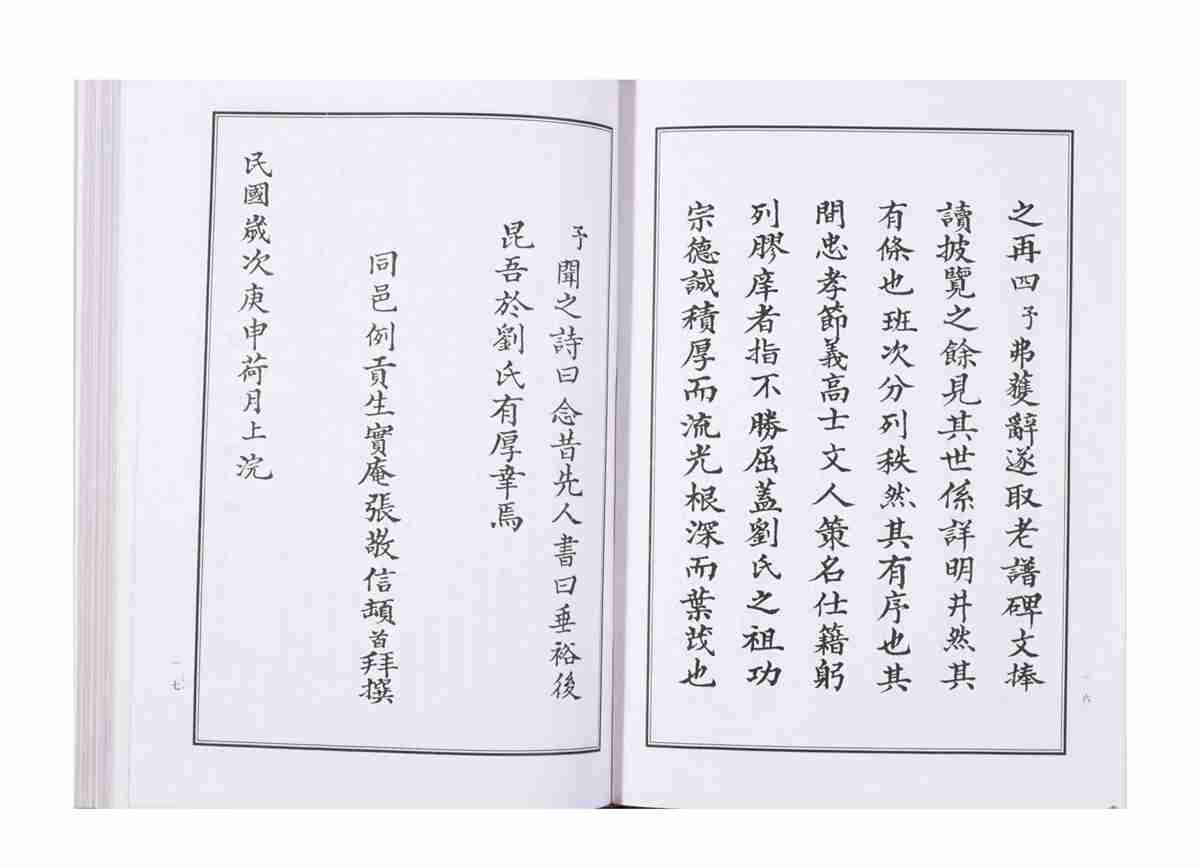 之再四予弗獲辭遂取老譜碑文捧
讀披覽之餘見其世係詳明井然其
有條也班次分列秩然其有序也其
間忠孝節義高士文人策名仕籍躬
列膠庠者指不勝屈蓋劉氏之祖功
宗德誠積厚而流光根深而葉茂也
一六
予聞之詩曰念昔先人書曰垂裕後
昆吾於劉氏有厚幸焉
同邑例貢生實庵張敬信頡首拜撰
民國嵗次庚申荷月上浣
一七